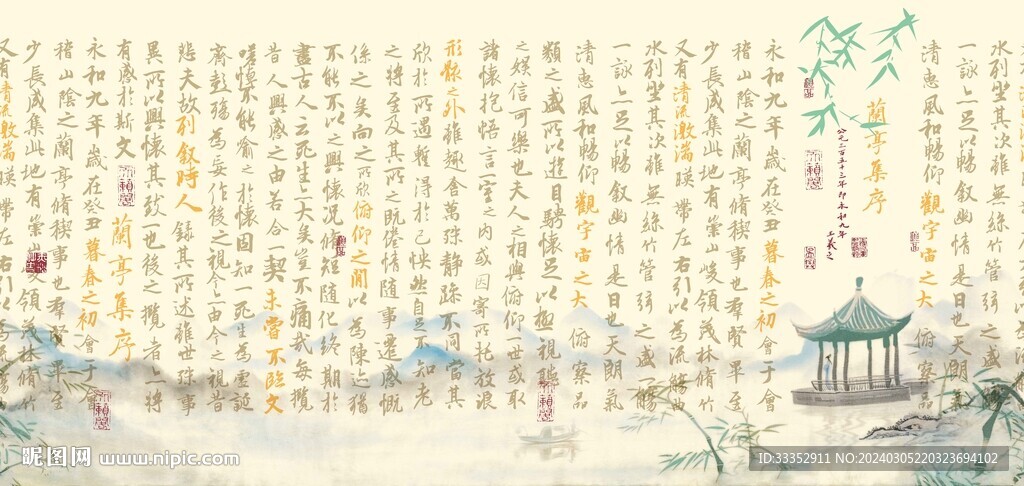 水列坐其次雖無絲竹管弦之盛一觴
一詠亦足以暢敘幽情是日也天朗氣
清惠風和暢仰觀宇宙之大俯察品
蘭亭集序
公元三百五十三年即永和九年
王羲之
永和九年歲在癸丑暮春之初會于會
稽山陰之蘭亭脩稧事也群賢畢至
少長咸集此地有崇山峻領茂林脩竹
又有清流激湍暎帶左右引以為流觴曲
水列坐其次雖無絲竹管弦之盛一觴
一詠亦足以暢敘幽情是日也天朗氣
清惠風和暢仰觀宇宙之大俯察品
類之盛所以遊目騁懷足以極視聽
之娛信可樂也夫人之相與俯仰一世或取
諸懷抱悟言一室之內或因寄所托放浪
形骸之外雖趣舍萬殊靜躁不同當其
欣於所遇暫得於己怏然自足不知老
之將至及其所之既倦情隨事遷感慨
係之矣向之所欣俯仰之閒以為陳迹猶
不能不以之興懷況脩短隨化終期於
盡古人云死生亦大矣豈不痛哉每攬
昔人興感之由若合一契未嘗不臨文
嗟悼不能喻之於懷固知一死生為虛誕
齊彭殤為妄作後之視今亦由今之視昔
悲夫故列敘時人錄其所述雖世殊事
異所以興懷其致一也後之攬者亦將
有感於斯文
蘭亭集序
永和九年歲在癸丑暮春之初會于會
稽山陰之蘭亭脩稧事也群賢畢至
少長咸集此地有崇山峻領茂林脩竹
又有清流激湍暎帶左右引以為流
昵图网 www.nipic.com
ID:33352911 NO:20240305220323694102